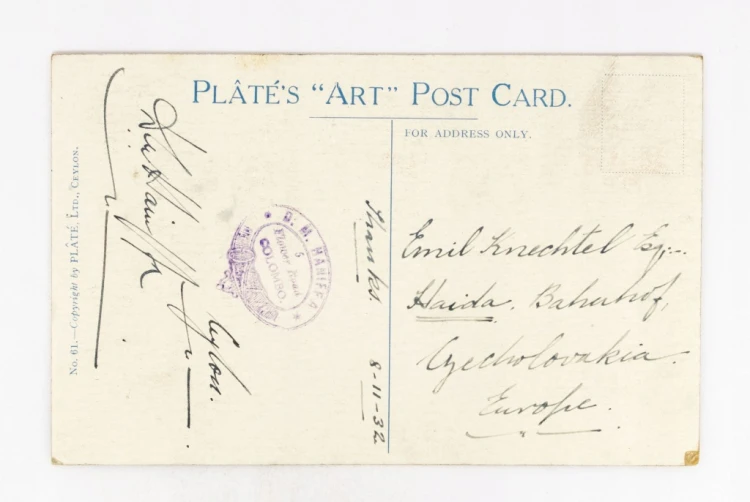 PLÂTÉ'S "ART" POST CARD.
FOR ADDRESS ONLY.
No. 61.—Copyright by PLÂTÉ, LTD., CEYLON.
Ceylon.
D. M. HANIFFA
5
Flower Road
COLOMBO.
Thanks. 8-11-32
Emil Knechtel Esq.
Haida. Bahnhof,
Czecholovakia.
Europe.